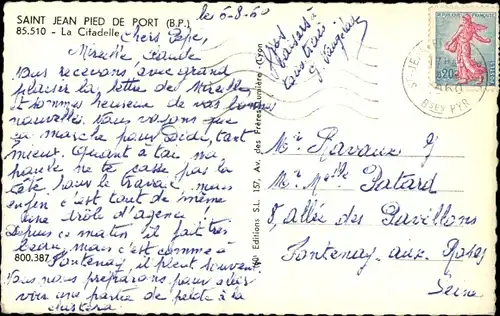 SAINT JEAN PIED DE PORT (B.P.)
85.510 - La Citadelle
le 6-8-60
Chers Pépé,
Mireille, Claude
Nous recevons, avec grand
plaisir la lettre de Mireille
et sommes heureux de vos bonnes
nouvelles. Nous voyons que
ça marche pour Dédé, tant
mieux. Quant à toi, ma
pauvre ne te casse pas la
tête pour le travail, mais
enfin c'est tout de même
une drôle d'agence!
Depuis ce matin il fait très
beau, mais c'est comme à
Fontenay, il pleut souvent.
Nous nous préparons pour aller
voir une partie de pelote à la
800.387
Bons
baisers à
tous trois
Editions S.L. 157, Av. des Frères-Lumière (Lyon)
RÉPUBLIQUE FRANÇAISE
0,20
POSTES
Bses PYR
Mr Ravaux G
Mr Mme Patard
8, allée des Pavillons
Fontenay-aux-Roses
Seine